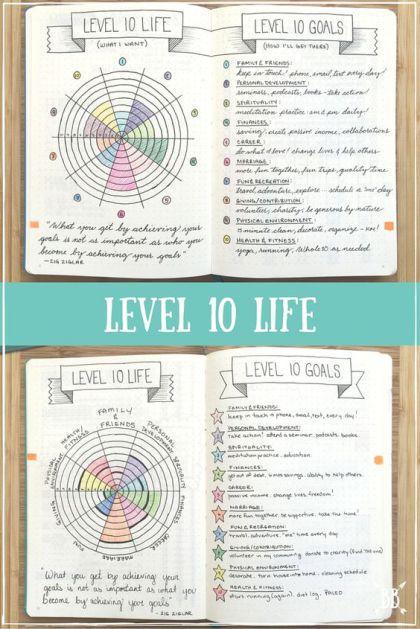 LEVEL 10 LIFE
(WHAT I WANT)
1
2
3
4
5
6
7
8
9
10
"What you get by achieving your
goals is not as important as who you
become by achieving your goals."
- ZIG ZIGLAR
LEVEL 10 GOALS
(HOW I'LL GET THERE)
FAMILY & FRIENDS:
keep in touch! phone, email, text every day!
PERSONAL DEVELOPMENT:
seminars, podcasts, books - take action!
SPIRITUALITY:
meditation practice am & pm daily!
FINANCES:
saving, create passive income, collaborations
CAREER:
do what I love! change lives & help others
MARRIAGE:
more fun together, fun trips, quality time
FUN & RECREATION:
travel, adventure, explore - schedule a "me" day
GIVING/CONTRIBUTION:
volunteer, charity, be generous by nature
PHYSICAL ENVIRONMENT:
15 minute clean, decorate, organize
HEALTH & FITNESS:
yoga, running, Whole30 as needed
LEVEL 10 LIFE
LEVEL 10 LIFE
FAMILY & FRIENDS
PERSONAL DEVELOPMENT
SPIRITUALITY
FINANCES
CAREER
MARRIAGE
FUN
GIVING
PHYSICAL ENVIRONMENT
HEALTH FITNESS
"What you get by achieving your
goals is not as important as what you
become by achieving your goals"
- ZIG ZIGLAR
LEVEL 10 GOALS
FAMILY & FRIENDS:
keep in touch phone, email, text, every day!
PERSONAL DEVELOPMENT:
take action! attend a seminar, podcasts, books.
SPIRITUALITY:
meditation practice, education.
FINANCES:
get out of debt, savings, ability to help others.
CAREER:
passive income, change lives, freedom!
MARRIAGE:
more fun together, be supportive, take the time!
FUN & RECREATION:
travel, adventure, "me" time every day
GIVING/CONTRIBUTION:
volunteer in my community, donate to charity
PHYSICAL ENVIRONMENT:
decorate, turn house into home, cleaning schedule
HEALTH & FITNESS:
start running (again), diet log, PALEO
BB